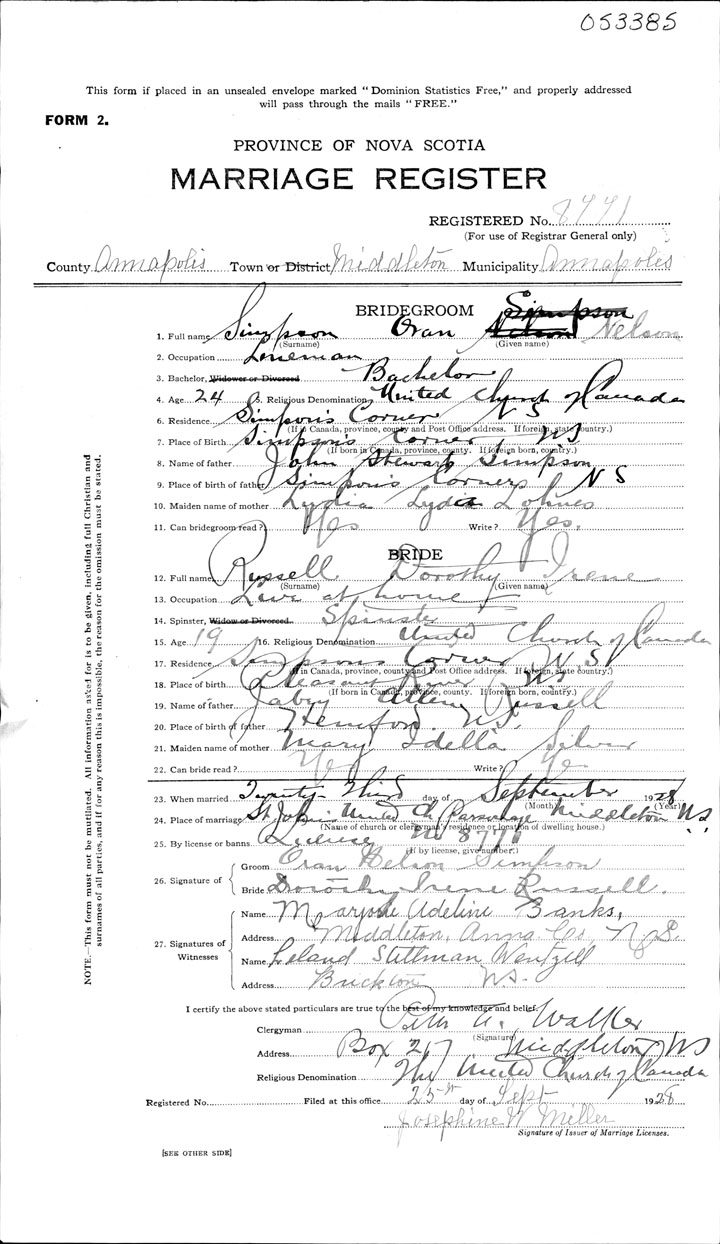 053385
This form if placed in an unsealed envelope marked "Dominion Statistics Free," and properly addressed
will pass through the mails "FREE."
FORM 2.
PROVINCE OF NOVA SCOTIA
MARRIAGE REGISTER
REGISTERED No. 8771
(For use of Registrar General only)
County Annapolis Town or District Middleton Municipality Annapolis
BRIDEGROOM Simpson
1. Full name Simpson Oran Nelson Nelson
(Surname) (Given name)
2. Occupation Lineman
3. Bachelor, Widower or Divorced Bachelor
4. Age 24 5. Religious Denomination United Church of Canada
6. Residence Simpson's Corner N S
(If in Canada, province, county and Post Office address. If foreign, state country.)
7. Place of Birth Simpson's Corner N S
(If born in Canada, province, county. If foreign born, country.)
8. Name of father John Stewart Simpson
9. Place of birth of father Simpson's Corners N S
10. Maiden name of mother Lydia Lydia Lohnes
11. Can bridegroom read? Yes Write? Yes.
BRIDE
12. Full name Russell Dorothy Irene
(Surname) (Given name)
13. Occupation Live at home
14. Spinster, Widow or Divorced Spinster
15. Age 19 16. Religious Denomination United Church of Canada
17. Residence Simpsons Corner N. S.
(If in Canada, province, county and Post Office address. If foreign, state country.)
18. Place of birth Pleasant River N.S.
(If born in Canada, province, county. If foreign born, country.)
19. Name of father Allen Russell
20. Place of birth of father Hemford N.S.
21. Maiden name of mother Mary Idella Silver
22. Can bride read? Yes Write? Yes
23. When married Twenty Third day of September 1928
(Month) (Year)
24. Place of marriage St John's United Ch Parsonage Middleton N.S.
(Name of church or clergyman's residence or location of dwelling house.)
25. By license or banns License No 8771
(If by license, give number.)
26. Signature of
Groom Oran Nelson Simpson
Bride Dorothy Irene Russell.
27. Signatures of Witnesses
Name Marjorie Adeline Banks,
Address Middleton, Anna Co, N.S.
Name Leland Stillman Wentzell
Address Brickton N.S.
I certify the above stated particulars are true to the best of my knowledge and belief.
Clergyman A. Walker
(Signature)
Address Box 217 Middleton N S
Religious Denomination The United Church of Canada
Registered No. Filed at this office 25th day of Sept 1928
Josephine W Miller
Signature of Issuer of Marriage Licenses.
[SEE OTHER SIDE]
NOTE.—This form must not be mutilated. All information asked for is to be given, including full Christian and
surnames of all parties, and if for any reason this is impossible, the reason for the omission must be stated.